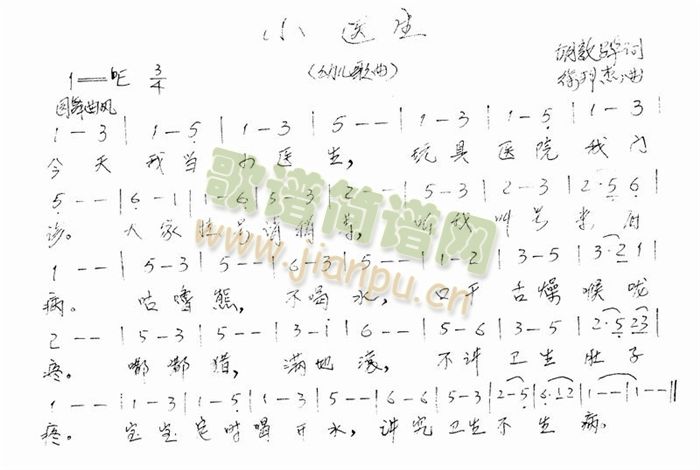 小医生
1=♭E 3/4 (幼儿歌曲) 词
圆舞曲风 曲
1 — 3 | 1 — 5̣ | 1 — 3 | 5 — — | 1 — 3 | 1 — 5̣ | 1 — 3 |
今天我当小医生，玩具医院我门
5̣ — — | 6̣ — 1 | 1 — 6̣ | 5 — 3 | 2 — — | 5 — 3 | 2 — 3 | 2·5̣ 6̣ |
诊。大家挂号请排，听我叫号来看
1 — — | 5 — 3 | 5 — — | 6 — 3 | 5 — — | 1 — 2 | 3 — 5 | 3·2 1 |
病。咕噜熊，不喝水，口干舌燥喉咙
2 — — | 5 — 3 | 5 — — | 3 — i | 6 — — | 5 — 6 | 3 — 5 | 2·5̣ 23 |
疼。嘟嘟猪，满地滚，不讲卫生肚子
1 — — | 1 — 3 | 1 — 5̣ | 1 — 3 | 5 — — | 6 — 6 | 5 — 3 | 2 — 5 | 6·12 | 1 — — | 1 — — ‖
疼。宝宝定时喝开水，讲究卫生不生病。
歌谱简谱网
www.jianpu.cn